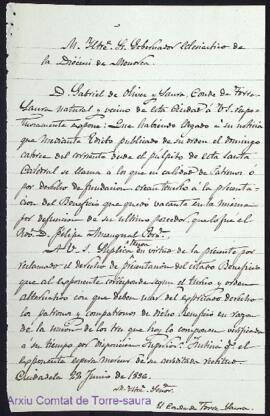 M. Iltre. Sr. Gobernador Eclesiástico de
la Diócesis de Menorca.
D. Gabriel de Olives y Saura, Conde de Torre-
Saura natural y vecino de esta Ciudad á V.S. respe-
tuosamente expone: Que habiendo llegado á su noticia
que mediante Edicto publicado de su orden el domingo
catorce del corriente desde el púlpito de esta Santa
Catedral se llama á los que en calidad de Patronos ó
por derecho de fundacion crean tenerlo á la presenta-
cion del Beneficio que quedó vacante en la misma
por defuncion de su último poseedor que lo fué el
Rdo. D. Felipe
A V.S. Suplica en virtud de la presente por
reclamado el derecho de presentacion del citado Beneficio
que al exponente corresponde segun el turno y orden
alternativo con que deben usar del expresado derecho
los patronos y compatronos de dicho Beneficio en razon
de la union de los tres que hoy lo componen verificada
á su tiempo por Disposicion Superior. Justicia que el
exponente espera merecer de su acreditada rectitud.
Ciudadela 23 Junio de 1896.
M. Iltre. Señor.
El Conde de Torre-Saura
Arxiu Comtat de Torre-saura